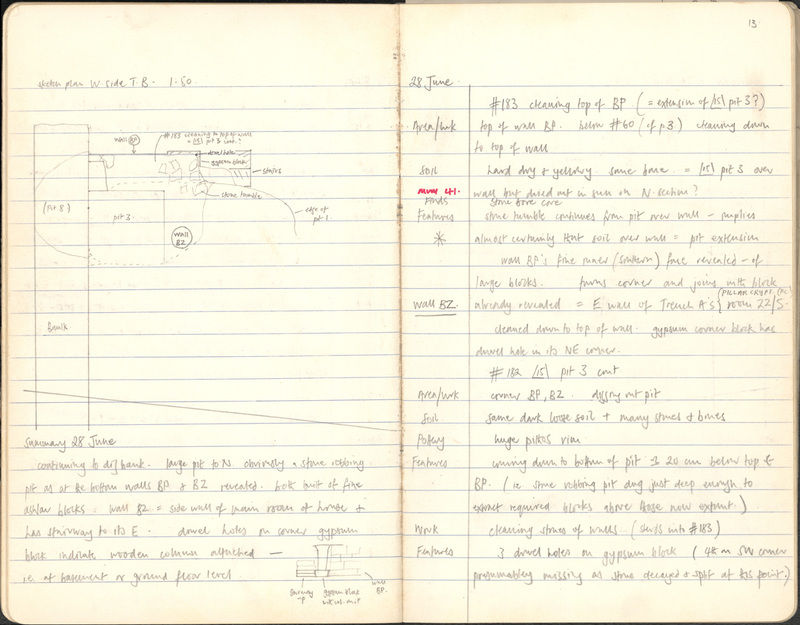 sketch plan W. side T.B. 1:50
wall BP
#183 cleaning on top of wall
= /15\ pit 3 cont?
dowel hole
gypsum block
stairs
stone tumble
edge of
pit 1
(Pit 8)
pit 3
wall
BZ
Baulk
Summary 28 June
continuing to dig bank. large pit to N obviously a stone robbing
pit as at the bottom walls BP & BZ revealed. both built of fine
ashlar blocks. wall BZ = side wall of main room of house &
has stairway to its E. dowel holes on corner gypsum
block indicate wooden column attached —
i.e. at basement or ground floor level.
stairway
gypsum block
wall
BP.
13.
28 June
#183 cleaning top of BP. (= extension of /15\ pit 3?)
Area/wrk top of wall BP. below #60 (of p3) cleaning down
to top of wall
Soil hard dry & yellowy some bone. = /15\ pit 3 over
mm 41. wall but dried out in sun on N. section?
Finds stone bore core
Features stone tumble continues from pit over wall - implies
* almost certainly that soil over wall = pit extension
wall BP's fine inner (southern) face revealed - of
large blocks. turns corner and joins with block
(PILLAR CRYPT
wall BZ. already revealed = E wall of Trench A's room 22/5.
cleaned down to top of wall. gypsum corner block has
dowel hole in its NE corner.
#182 /15\ pit 3 cont
Area/wrk corner BP, BZ. digging out pit
Soil same dark loose soil + many stones & bones
Pottery huge pithos rim
Features coming down to bottom of pit 20 cm below top of
BP. (i.e. stone robbing pit dug just deep enough to
extract required blocks above those now extant.)
Work cleaning stones of walls. (sherds into #183)
Features 3 dowel holes on gypsum block (4th on SW corner
presumably missing as stone decayed & split at this point.)